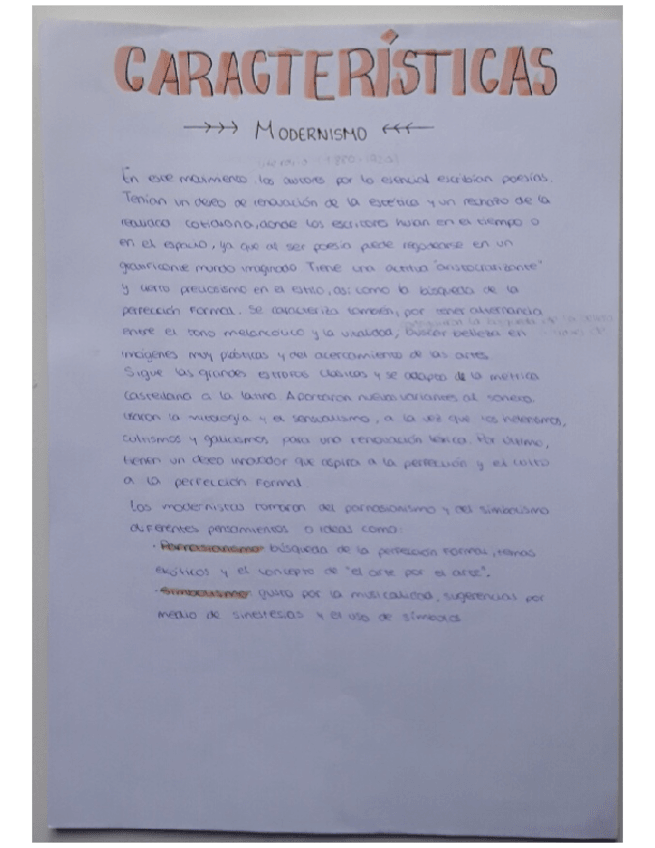 CARACTERÍSTICAS
MODERNISMO
En este movimiento los autores por lo esencial escribían poesías.
Tenían un deseo de renovación de la estética y un rechazo de la
realidad cotidiana, donde los escritores huían en el tiempo o
en el espacio, ya que al ser poesía puede regodearse en un
gratificante mundo imaginado. Tiene una actitud "aristocratizante"
y cierto preciosismo en el estilo, así como la búsqueda de la
perfección formal. Se caracteriza también, por tener alternancia
entre el tono melancólico y la vitalidad, buscar belleza en
imágenes muy plásticas y del acercamiento de las artes.
Sigue las grandes estrofas clásicas y se adapta de la métrica
castellana a la latina. Aportaron nuevas variantes al soneto.
Usaron la mitología y el sensualismo, a la vez que los helenismos,
cultismos y galicismos para una renovación léxica. Por último,
tienen un deseo innovador que aspira a la perfección y el culto
a la perfección formal.
Los modernistas tomaron del parnasianismo y del simbolismo
diferentes pensamientos o ideas como:
· Parnasianismo: búsqueda de la perfección formal, temas
exóticos y el concepto de "el arte por el arte".
· Simbolismo: gusto por la musicalidad, sugerencias por
medio de sinestesias y el uso de símbolos